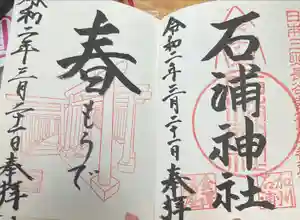 日本三
石浦神社
令和二年三月二十一日奉拝
春もうで
令和二年三月二十一日奉拝